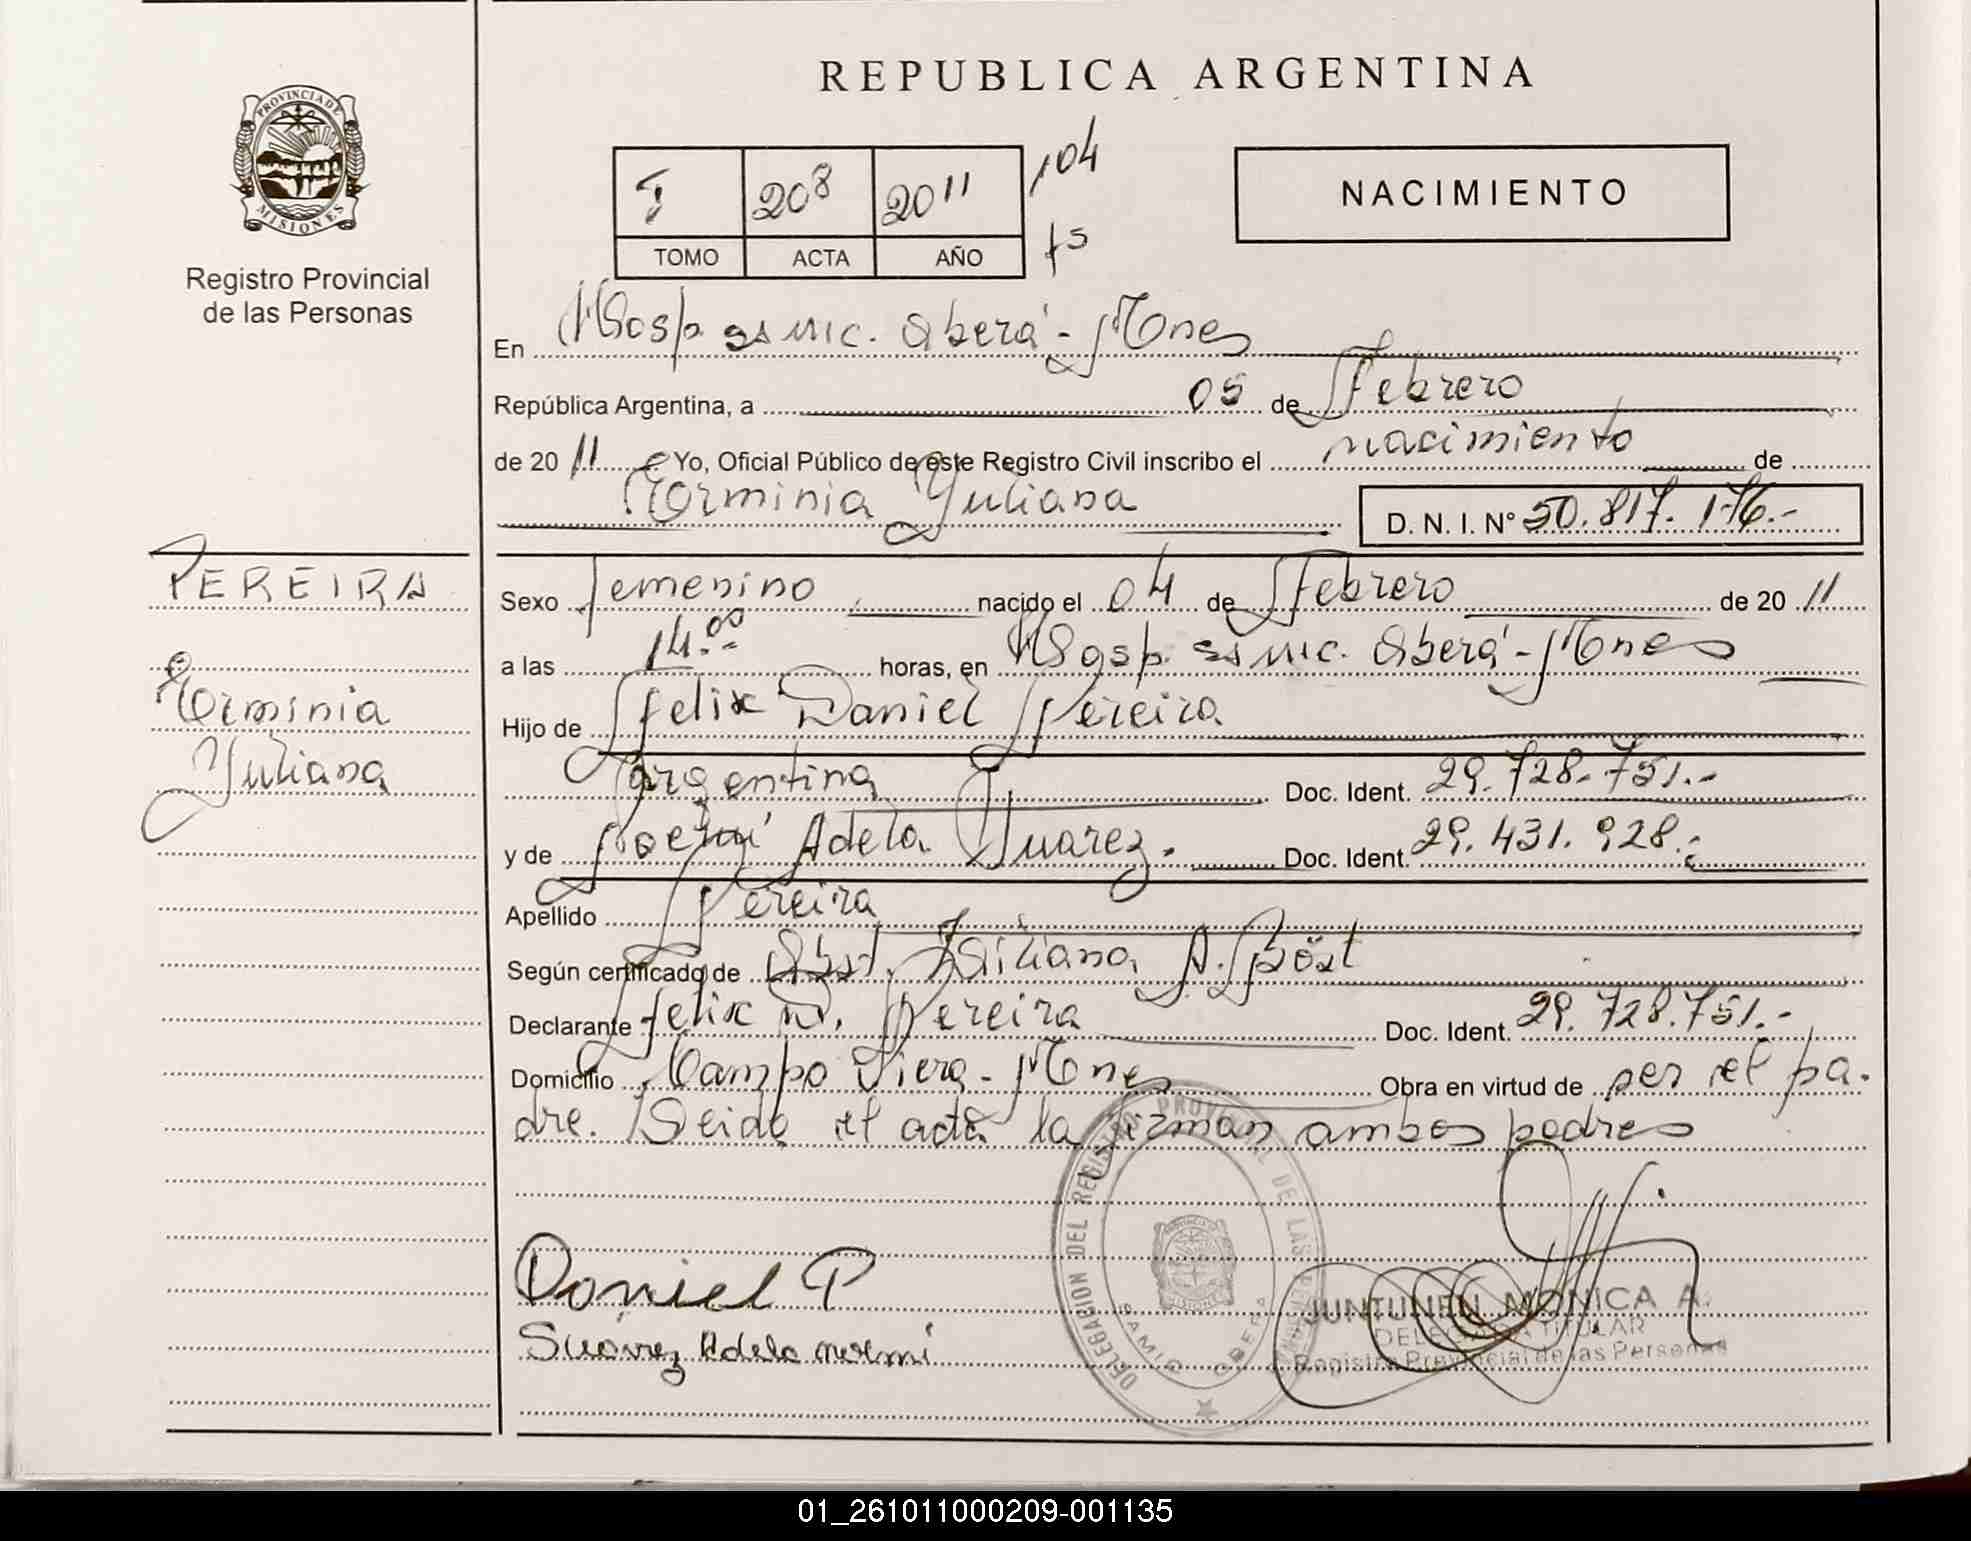 REPUBLICA ARGENTINA
PROVINCIA DE
MISIONES
Registro Provincial
de las Personas
I 208 2011 104
TOMO ACTA AÑO fs
NACIMIENTO
En Hosp. Oberá - Mnes
República Argentina, a 05 de Febrero
de 20 11 Yo, Oficial Público de este Registro Civil inscribo el nacimiento de
Yuliana
D. N. I. N° 50.817.176.-
PEREIRA
Yuliana
Sexo femenino nacido el 04 de Febrero de 20 11
a las 14.00 horas, en Hosp. Oberá - Mnes
Hijo de Felix Daniel Pereira
Argentina Doc. Ident. 29.728.751.-
y de Noemí Adela Suarez. Doc. Ident. 29.431.928.-
Apellido Pereira
Según certificado de Obst. A.
Declarante Felix D. Pereira Doc. Ident. 29.728.751.-
Domicilio Campo Viera - Mnes Obra en virtud de ser el pa-
dre. Leida el acta la firman ambos padres
Daniel P
Suárez Adela noemi
DELEGACION DEL REGISTRO PROVINCIAL DE LAS PERSONAS
JUNTUNEN MONICA A.
DELEGADA TITULAR
Registro Provincial de las Personas
01_261011000209-001135